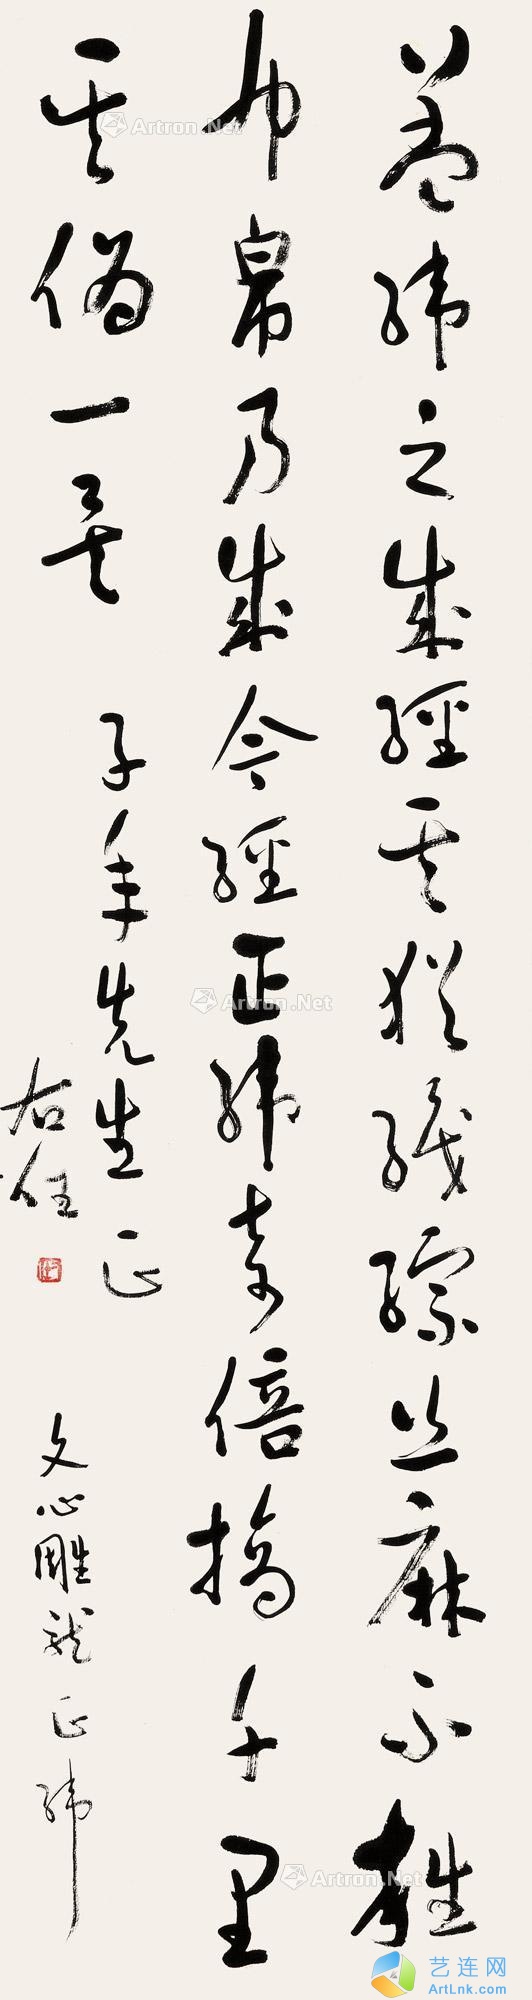 蓋緯之成經其猶織綜丝麻不雜
布帛乃成今經正緯奇倍摘千里
其偽一矣
子年先生正
右任
文心雕龍正緯
Artron.Net
Artron.Net
Artron.Net
Artron.Net
艺连网
ArtLnk.com